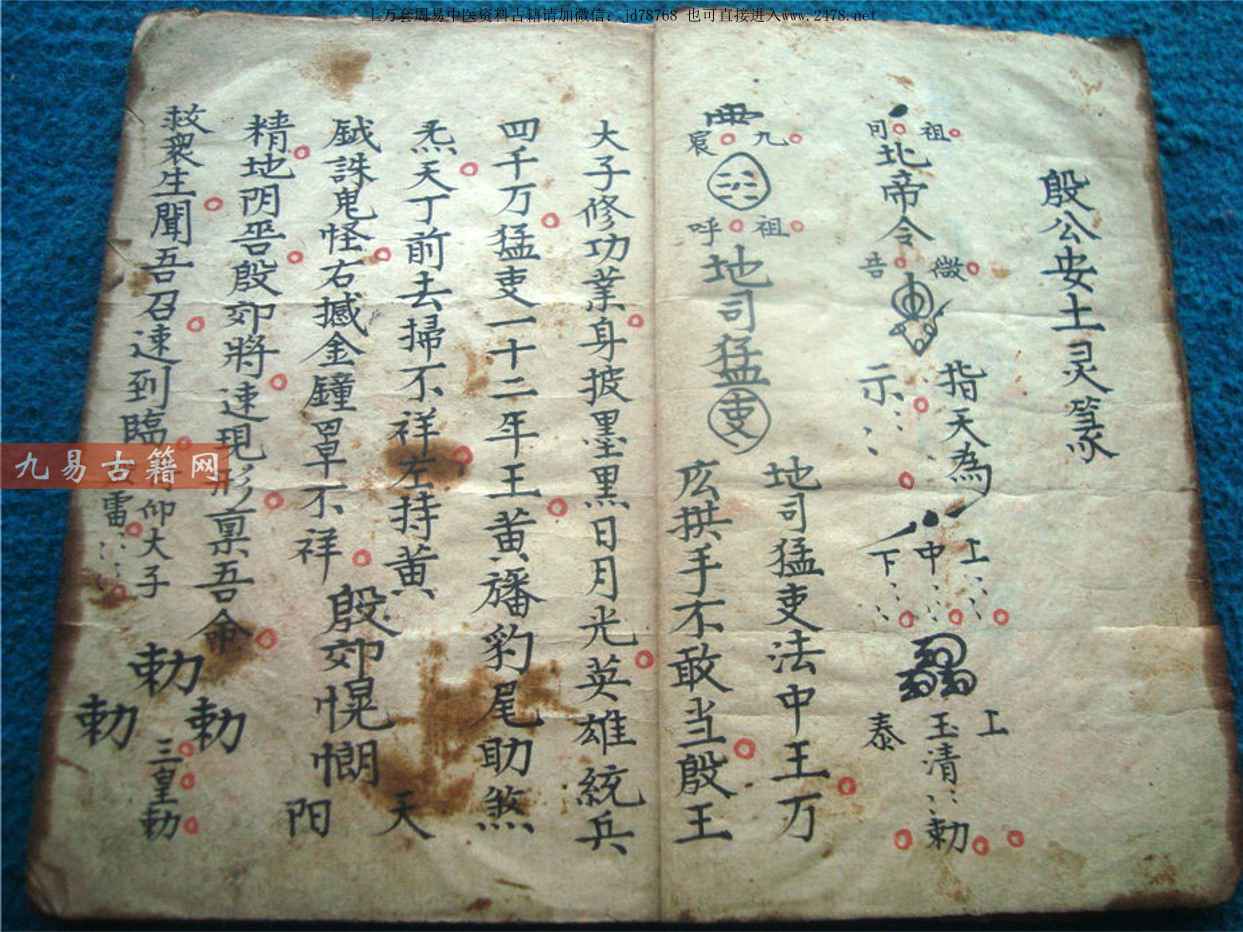 上万套周易中医资料古籍请加微信：jd78768 也可直接进入www.2478.net
殷公安土灵篆
祖 司
北帝令
微 告
指天為
示
上 中 下
上 玉清 泰
勅
九 宸
祖 呼
地司猛吏
地司猛吏法中王万
庅拱手不敢当殷王
大子修功業身披墨黑日月光英雄統兵
四千万猛吏一十二年王黄旛豹尾助煞
炁天丁前去掃不祥左持黄
天
鉞誅鬼怪右撼金鐘罩不祥
殷郊愰惘
阳
精地阴吾殷郊將速現形禀吾命
救衆生聞吾召速到臨
仰大子
雷
勅 勅 勅
三皇勅
九易古籍网